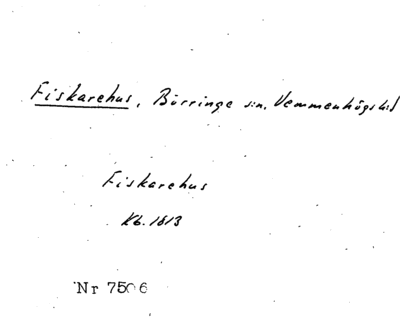 Fiskarehus, Börringe sn. Vemmenhögs hd
Fiskarehus
Kb. 1813
Nr 7506